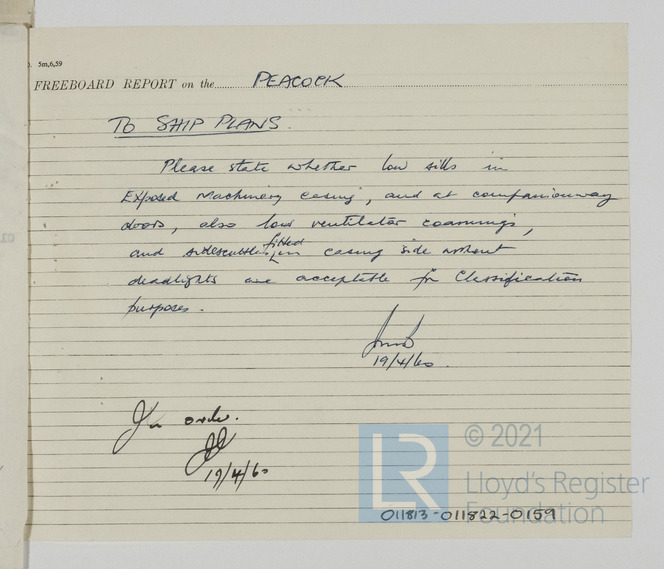 5m,6,59
FREEBOARD REPORT on the PEACOCK
TO SHIP PLANS.
Please state whether low sills in
Exposed Machinery casing, and at companionway
doors, also low ventilator coamings,
and sidescuttles fitted in casing side without
deadlights are acceptable for Classification
purposes.
19/4/60.
In order.
19/4/60
LR © 2021
Lloyd's Register
Foundation
011813-011822-0159